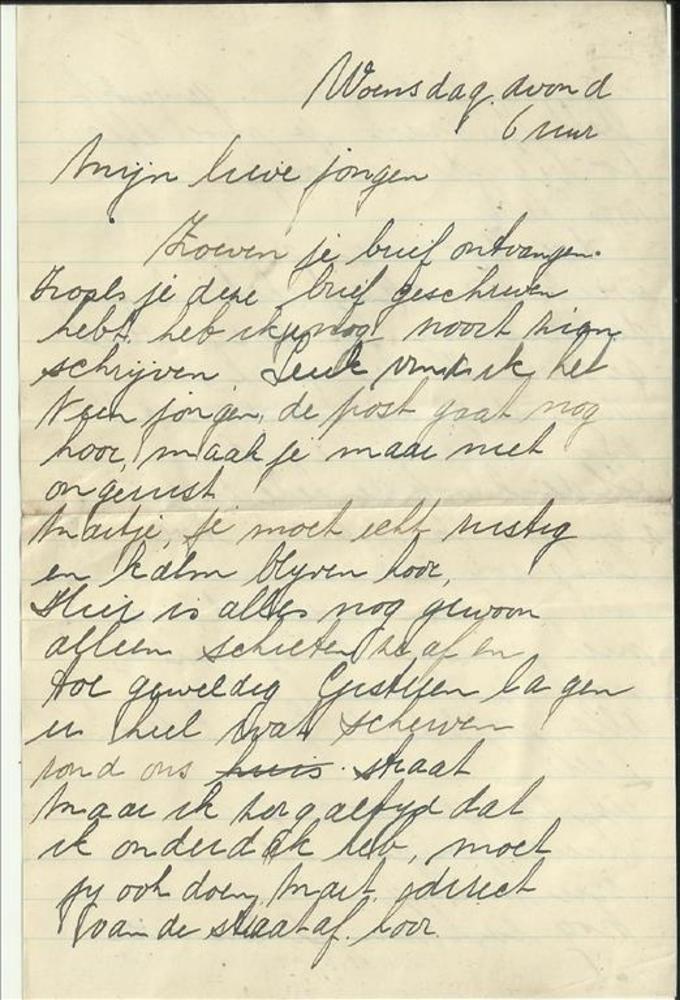 Woensdag avond
6 uur
Mijn lieve jongen
Zoeven je brief ontvangen.
Zooals je deze brief geschreven
hebt, heb ik je nog nooit zien
schrijven Leuk vind ik het
Neen jongen, de post gaat nog
hoor, maak je maar niet
ongerust
Martje, je moet echt rustig
en kalm blijven hoor,
Hier is alles nog gewoon
alleen schieten ze af en
toe geweldig Gisteren lagen
er heel wat scherven
rond ons huis. straat
Maar ik zorg altijd dat
ik onderdak heb, moet
jij ook doen, Mart. direct
van de straat af. hoor.